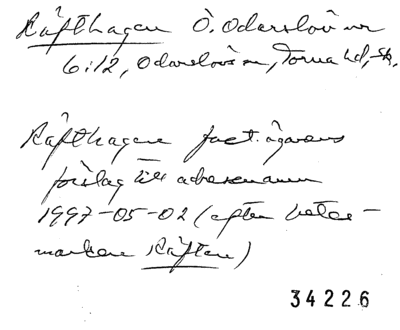 Räfthagen Ö. Odarslöv nr
6:12, Odarslövs sn, Torna hd, Sk.
Räfthagen fast.ägarens
förslag till adressnamn
1997-05-02 (efter betes-
marken Räften)
34226